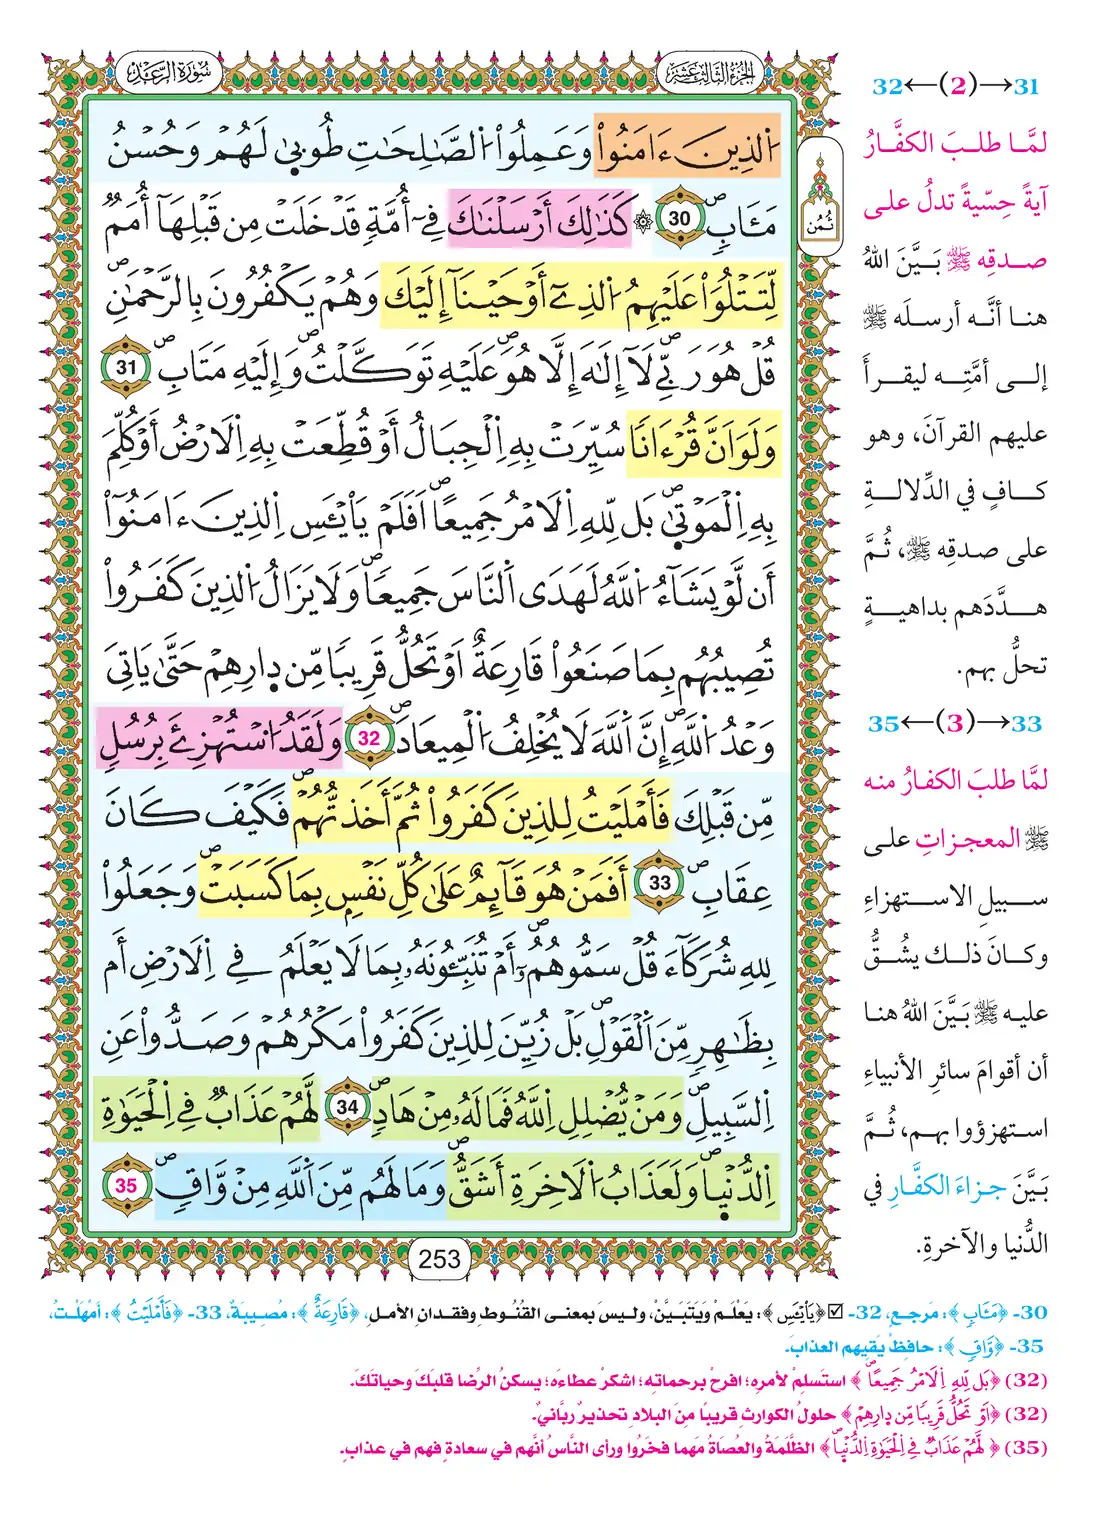 الجزء الثالث عشر
سورة الرعد
اَلذِينَ ءَامَنُواْ وَعَمِلُواْ اُلصَّٰلِحَٰتِ طُوبىٰ لَهُمْ وَحُسْنُ
مَـَٔابٖۖ 30 ۞ كَذَٰلِكَ أَرْسَلْنَٰكَ فِےٓ أُمَّةٖ قَدْ خَلَتْ مِن قَبْلِهَآ أُمَمٞ
لِّتَتْلُوَاْ عَلَيْهِمُ اُلذِےٓ أَوْحَيْنَآ إِلَيْكَ وَهُمْ يَكْفُرُونَ بِالرَّحْمَٰنِۖ
قُلْ هُوَ رَبِّے لَآ إِلَٰهَ إِلَّا هُوَۖ عَلَيْهِ تَوَكَّلْتُۖ وَإِلَيْهِ مَتَابِۖ 31
وَلَوَ اَنَّ قُرْءَاناٗ سُيِّرَتْ بِهِ اِلْجِبَالُ أَوْ قُطِّعَتْ بِهِ اِلَارْضُ أَوْ كُلِّمَ
بِهِ اِلْمَوْتىٰۖ بَل لِّلهِ اِلَامْرُ جَمِيعاًۖ اَفَلَمْ يَاْيْـَٔسِ اِلذِينَ ءَامَنُوٓاْ
أَن لَّوْ يَشَآءُ اُللَّهُ لَهَدَى اَلنَّاسَ جَمِيعاٗۖ وَلَا يَزَالُ اُلذِينَ كَفَرُواْ
تُصِيبُهُم بِمَا صَنَعُواْ قَارِعَةٌ اَوْ تَحُلُّ قَرِيباٗ مِّن دِارِهِمْ حَتَّىٰ يَاتِيَ
وَعْدُ اُللَّهِۖ إِنَّ اَللَّهَ لَا يُخْلِفُ اُلْمِيعَادَۖ 32 وَلَقَدُ اُسْتُهْزِۓَ بِرُسُلٖ
مِّن قَبْلِكَ فَأَمْلَيْتُ لِلذِينَ كَفَرُواْ ثُمَّ أَخَذتُّهُمْۖ فَكَيْفَ كَانَ
عِقَابِۖ 33 أَفَمَنْ هُوَ قَآئِمٌ عَلَىٰ كُلِّ نَفْسِۢ بِمَا كَسَبَتْۖ وَجَعَلُواْ
لِلهِ شُرَكَآءَ قُلْ سَمُّوهُمُۥٓۖ أَمْ تُنَبِّـُٔونَهُۥ بِمَا لَا يَعْلَمُ فِے اِلَارْضِ أَم
بِظَٰهِرٖ مِّنَ اَلْقَوْلِۖ بَلْ زُيِّنَ لِلذِينَ كَفَرُواْ مَكْرُهُمْ وَصَدُّواْ عَنِ
اِلسَّبِيلِۖ وَمَنْ يُّضْلِلِ اِللَّهُ فَمَا لَهُۥ مِنْ هَادٖۖ 34 لَّهُمْ عَذَابٞ فِے اِلْحَيَوٰةِ
اِلدُّنْيۭاۖ وَلَعَذَابُ اُلَاخِرَةِ أَشَقُّۖ وَمَا لَهُم مِّنَ اَللَّهِ مِنْ وَّاقٖۖ 35
ثمن
253
31→(2)←32
لمَّا طلبَ الكفَّارُ
آيةً حِسّيةً تدلُ على
صدقِه ﷺ بَيَّنَ اللهُ
هنا أنَّه أرسلَه ﷺ
إلى أمَّتِه ليقرأَ
عليهم القرآنَ، وهو
كافٍ في الدِّلالةِ
على صدقِه ﷺ، ثُمَّ
هدَّدَهم بداهيةٍ
تحلُّ بهم.
33→(3)←35
لمَّا طلبَ الكفارُ منه
ﷺ المعجزاتِ على
سبيلِ الاستهزاءِ
وكانَ ذلك يشُقُّ
عليه ﷺ بَيَّنَ اللهُ هنا
أن أقوامَ سائرِ الأنبياءِ
استهزؤوا بهم، ثُمَّ
بَيَّنَ جزاءَ الكفَّارِ في
الدُّنيا والآخرةِ.
30- ﴿مَـَٔابٖ﴾: مَرجعٍ، 32- ☑ ﴿يَاْيْـَٔسِ﴾: يَعْلَمْ وَيَتَبَيَّنْ، وليسَ بمعنى القُنُوطِ وفقدانِ الأملِ، ﴿قَارِعَةٌ﴾: مُصيبةٌ، 33- ﴿فَأَمْلَيْتُ﴾: أمْهَلْتُ،
35- ﴿وَّاقٖ﴾: حافظٍ يَقِيهِم العذابَ.
(32) ﴿بَل لِّلهِ اِلَامْرُ جَمِيعاًۖ﴾ استسلِمْ لأمرِه؛ افرحْ برحماتِه؛ اشكرْ عطاءَه؛ يسكنُ الرِّضا قلبَكَ وحياتَكَ.
(32) ﴿اَوْ تَحُلُّ قَرِيباٗ مِّن دِارِهِمْ﴾ حلولُ الكوارثِ قريبًا منَ البلادِ تحذيرٌ ربَّانيٌّ.
(35) ﴿لَّهُمْ عَذَابٞ فِے اِلْحَيَوٰةِ اِلدُّنْيۭاۖ﴾ الظَّلَمَةُ والعُصَاةُ مَهما فخَرُوا ورأى النَّاسُ أنَّهم في سعادةٍ فهم في عذابٍ.